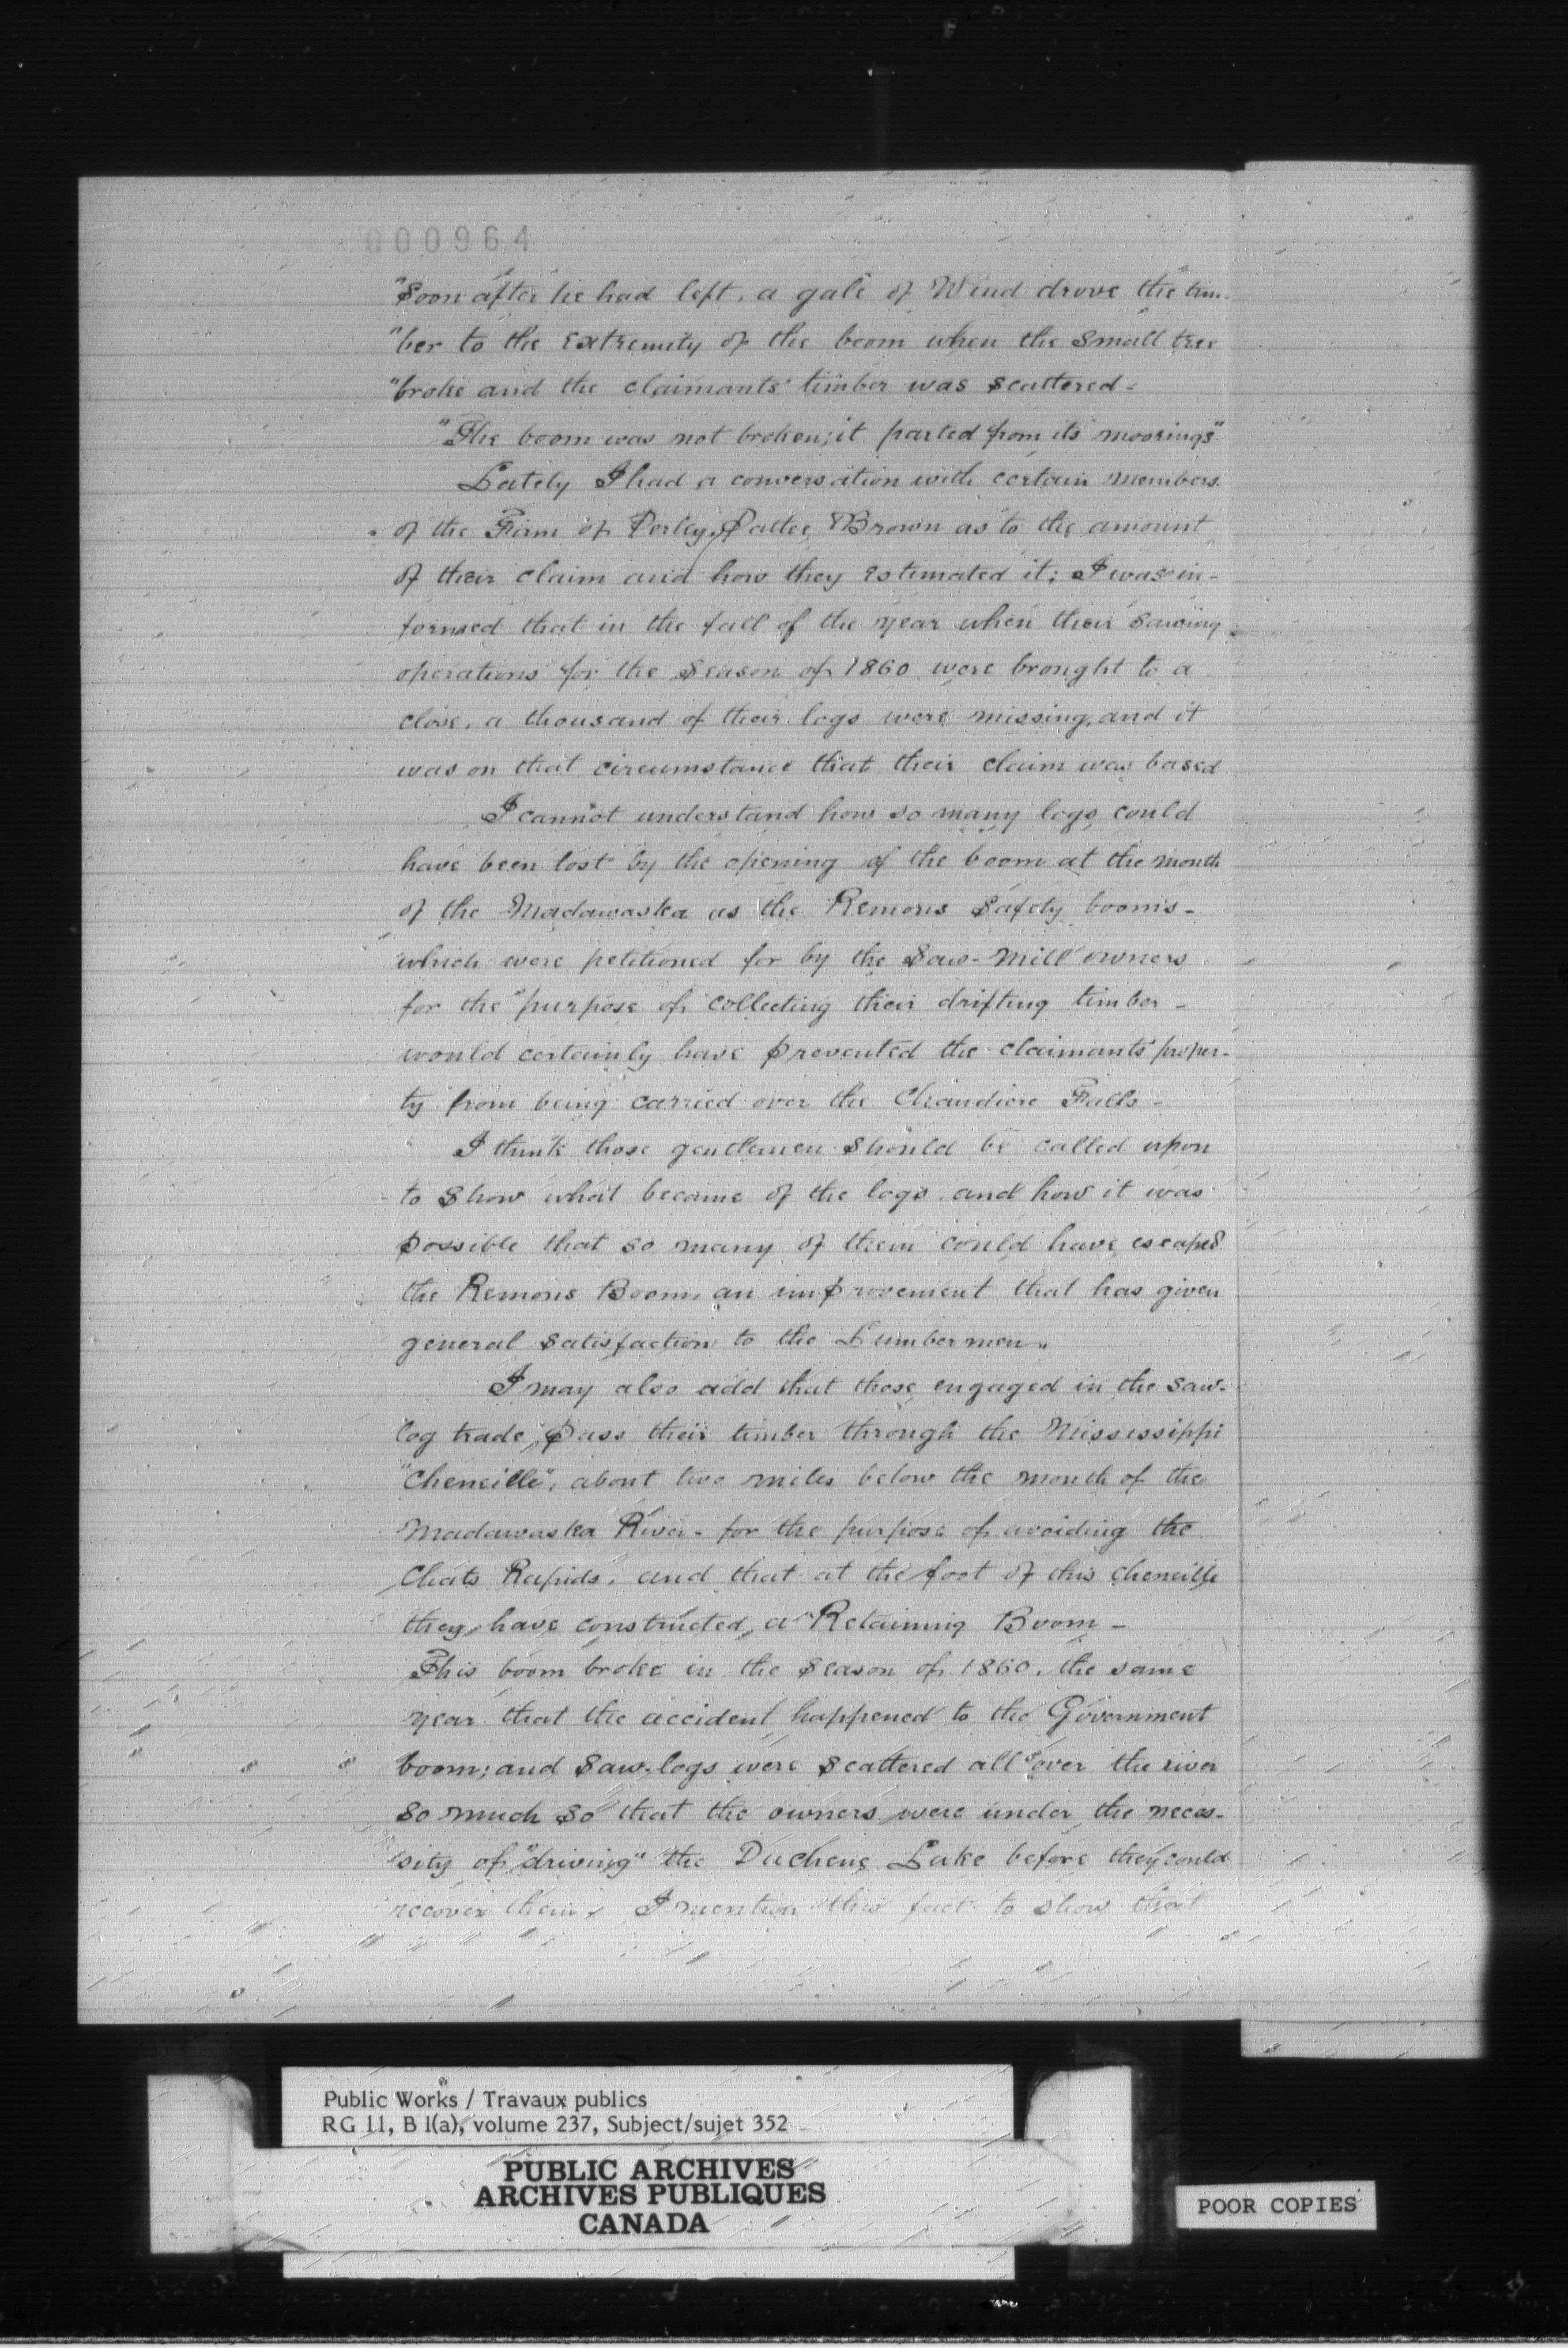 000964
"Soon after he had left, a gale of Wind drove the tim-
"ber to the Extremity of the boom when the small tree
"broke and the claimants' timber was scattered -
"The boom was not broken; it parted from its moorings"
Lately I had a conversation with certain members
of the Firm of Perley, Pattee & Brown as to the amount
of their claim and how they Estimated it; I was in-
formed that in the fall of the year when their Sawing
operations for the Season of 1860 were brought to a
close, a thousand of their logs were missing, and it
was on that circumstance that their claim was based
I cannot understand how so many logs could
have been lost by the opening of the boom at the mouth
of the Madawaska as the Remons Safety booms -
which were petitioned for by the Saw-Mill owners
for the purpose of collecting their drifting timber -
would certainly have prevented the claimants' proper-
ty from being carried over the Chaudiere Falls -
I think those gentlemen should be called upon
to show what became of the logs and how it was
possible that so many of them could have escaped
the Remons Boom, an improvement that has given
general satisfaction to the Lumbermen.
I may also add that those engaged in the saw-
log trade, pass their timber through the Mississippi
"Cheneille", about two miles below the mouth of the
Madawaska River - for the purpose of avoiding the
Chats Rapids, and that at the foot of this cheneille
they have constructed a Retaining Boom -
This boom broke in the Season of 1860, the same
year that the accident happened to the Government
boom; and Saw-logs were scattered all over the river
so much so that the owners were under the neces-
sity of "driving" the Duchene Lake before they could
recover them. I mention this fact to show that
Public Works / Travaux publics
RG 11, B 1(a), volume 237, Subject/sujet 352
PUBLIC ARCHIVES
ARCHIVES PUBLIQUES
CANADA
POOR COPIES